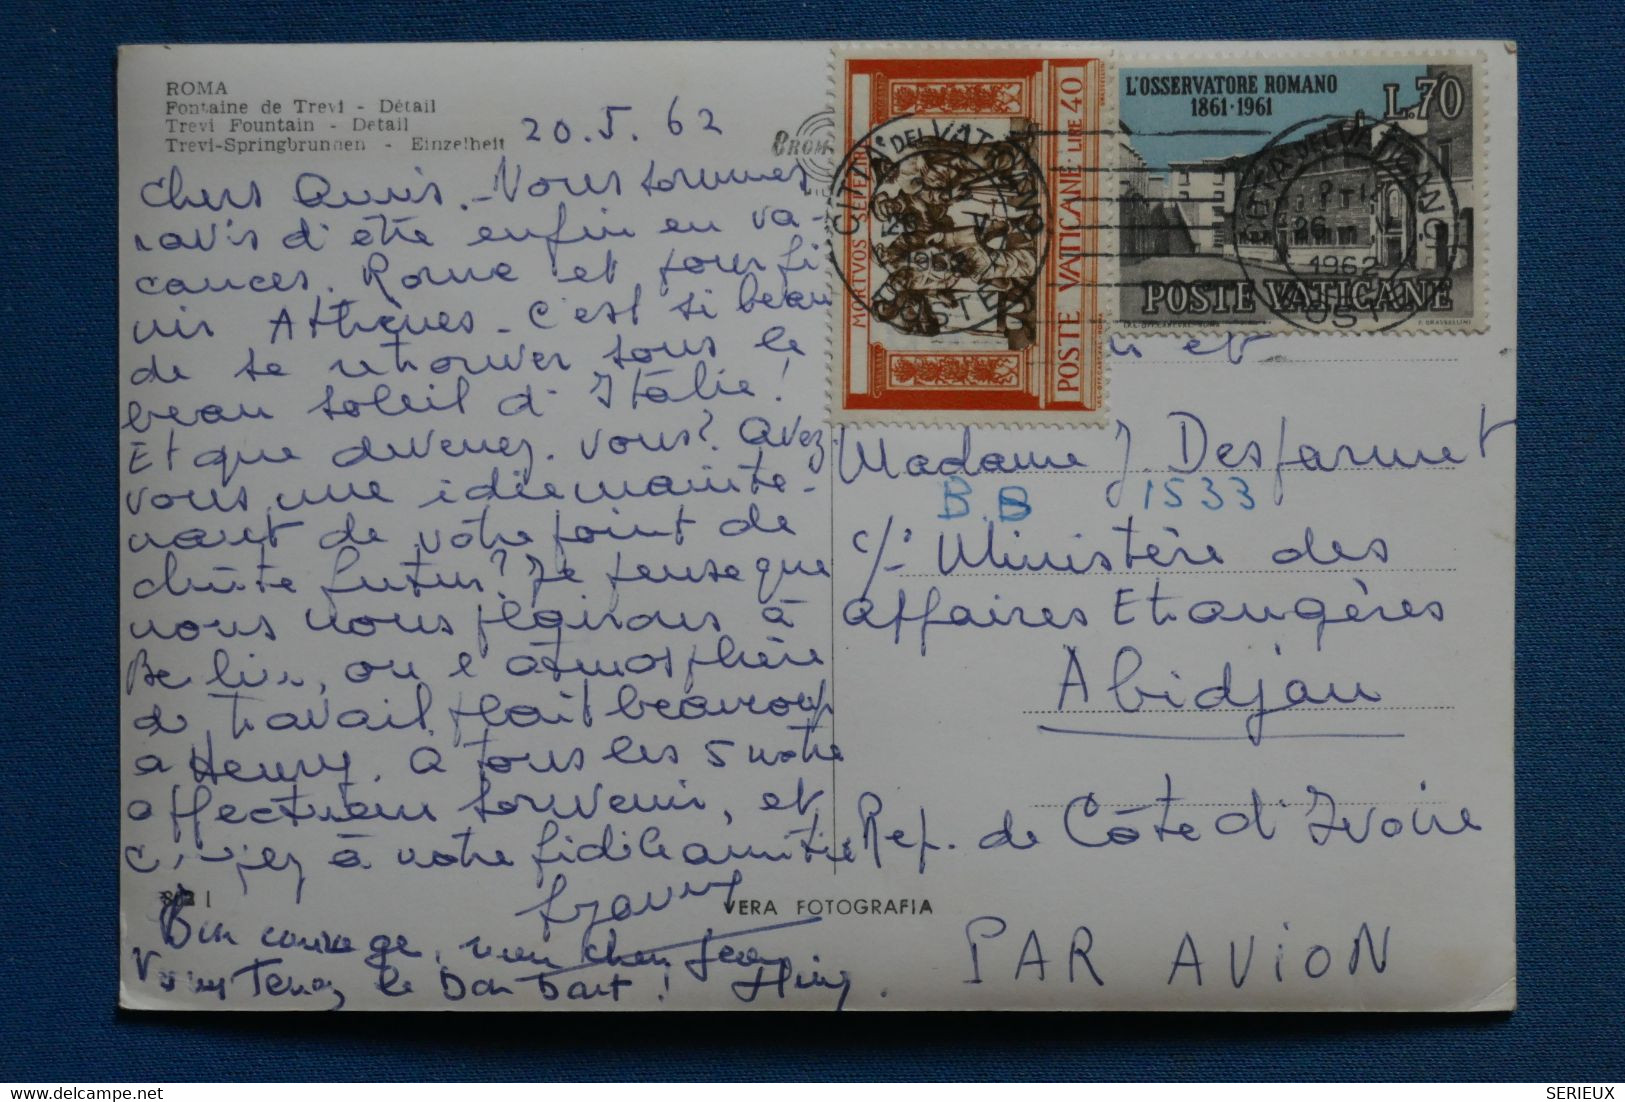 ROMA
Fontaine de Trevi - Détail
Trevi Fountain - Detail
Trevi-Springbrunnen - Einzelheit
20.5.62
Chers Amis. Vous sommes
ravis d'être enfin en va-
cances. Rome et pour fi
nir Athènes. C'est si beau
de se retrouver sous le
beau soleil d'Italie!
Et que devenez-vous? Avez
vous une idée mainte-
nant de votre point de
chute futur? Je pense que
nous nous plairons à
Berlin, où l'atmosphère
de travail plait beaucoup
a Henry. A tous les 5 notre
affectueux souvenir, et
à notre fidèle amitié
802 I
Bon courage, mon cher Jean
Vous tenez le bon bout! Henry.
VERA FOTOGRAFIA
MORTVOS SEPELIRE
POSTE VATICANE LIRE 40
L'OSSERVATORE ROMANO
1861-1961
L.70
POSTE VATICANE
CITTA DEL VATICANO
POSTE
26
1962
et
Madame J. Desfarmet
B.B 1533
c/° Ministère des
affaires Etrangères
Abidjan
Rep. de Côte d'Ivoire
PAR AVION
SERIEUX